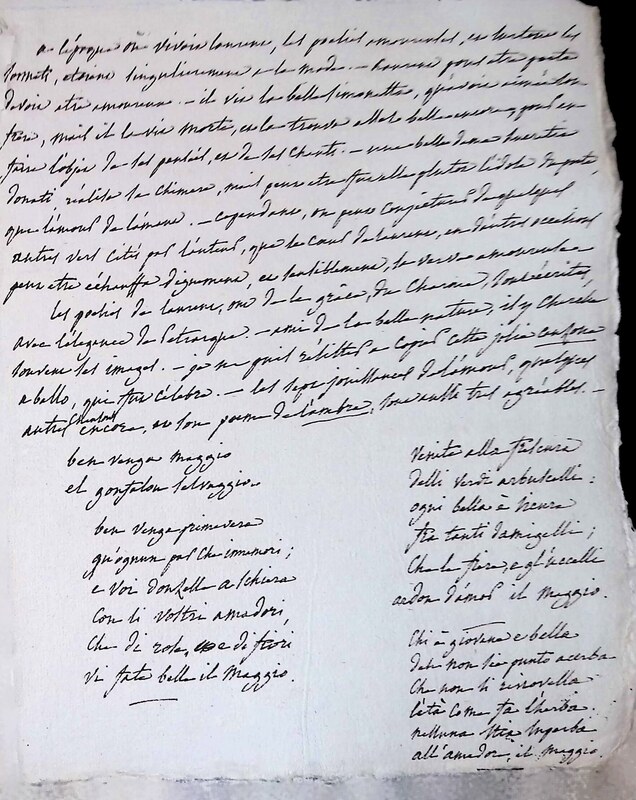 a l'époque ou vivoit laurent, les poesies amoureuses, et surtout les
sonnets, etoient singulierement a la mode. — laurent pour etre poete
devoit etre amoureux. — il vit la belle simonetta, qu'avoit aimée son
frere, mais il la vit morte, et la trouva assez belle encore, pour en
faire l'objet de ses pensées, et de ses chants. — une belle dame lucretia
donati, réalisa sa chimere, mais peut etre fut elle plutot l'idole du poete,
que l'amour de l'amant. — cependant, on peut conjecturer de quelques
autres vers cités par l'auteur, que le cœur de laurent, en d'autres occasions
peut etre échauffa dignement, et sensiblement, sa verve amoureuse —
les poesies de laurent, ont de la grâce, du charme, sont écrites,
avec l'élégance de Petrarque. — ami de la belle nature, il y cherche
souvent ses images. — je ne puis résister a copier cette jolie canzone
a ballo, qui fut célebre. — les sept jouissances de l'amour, quelques
autres chansons encore, et son poeme de l'ambra, sont aussi tres agréables. —
ben venga maggio
el gonfalon selvaggio.
ben venga primavera
qu'ognun par che innamori;
e voi donzelle a schiera
con li vostri amadori,
che di rose, e di fiori
vi fate belle il Maggio.
Venite alla frescura
delli verdi arbuscelli:
ogni bella è sicura
fra tanti damigelli;
che le fiere, e gl'uccelli
ardon d'amor il Maggio.
Chi è giovane e bella
deh non sia punto acerba
che non si rinnovella
l'età come fa l'herba.
nessuna stia superba
all'amadore, il maggio.